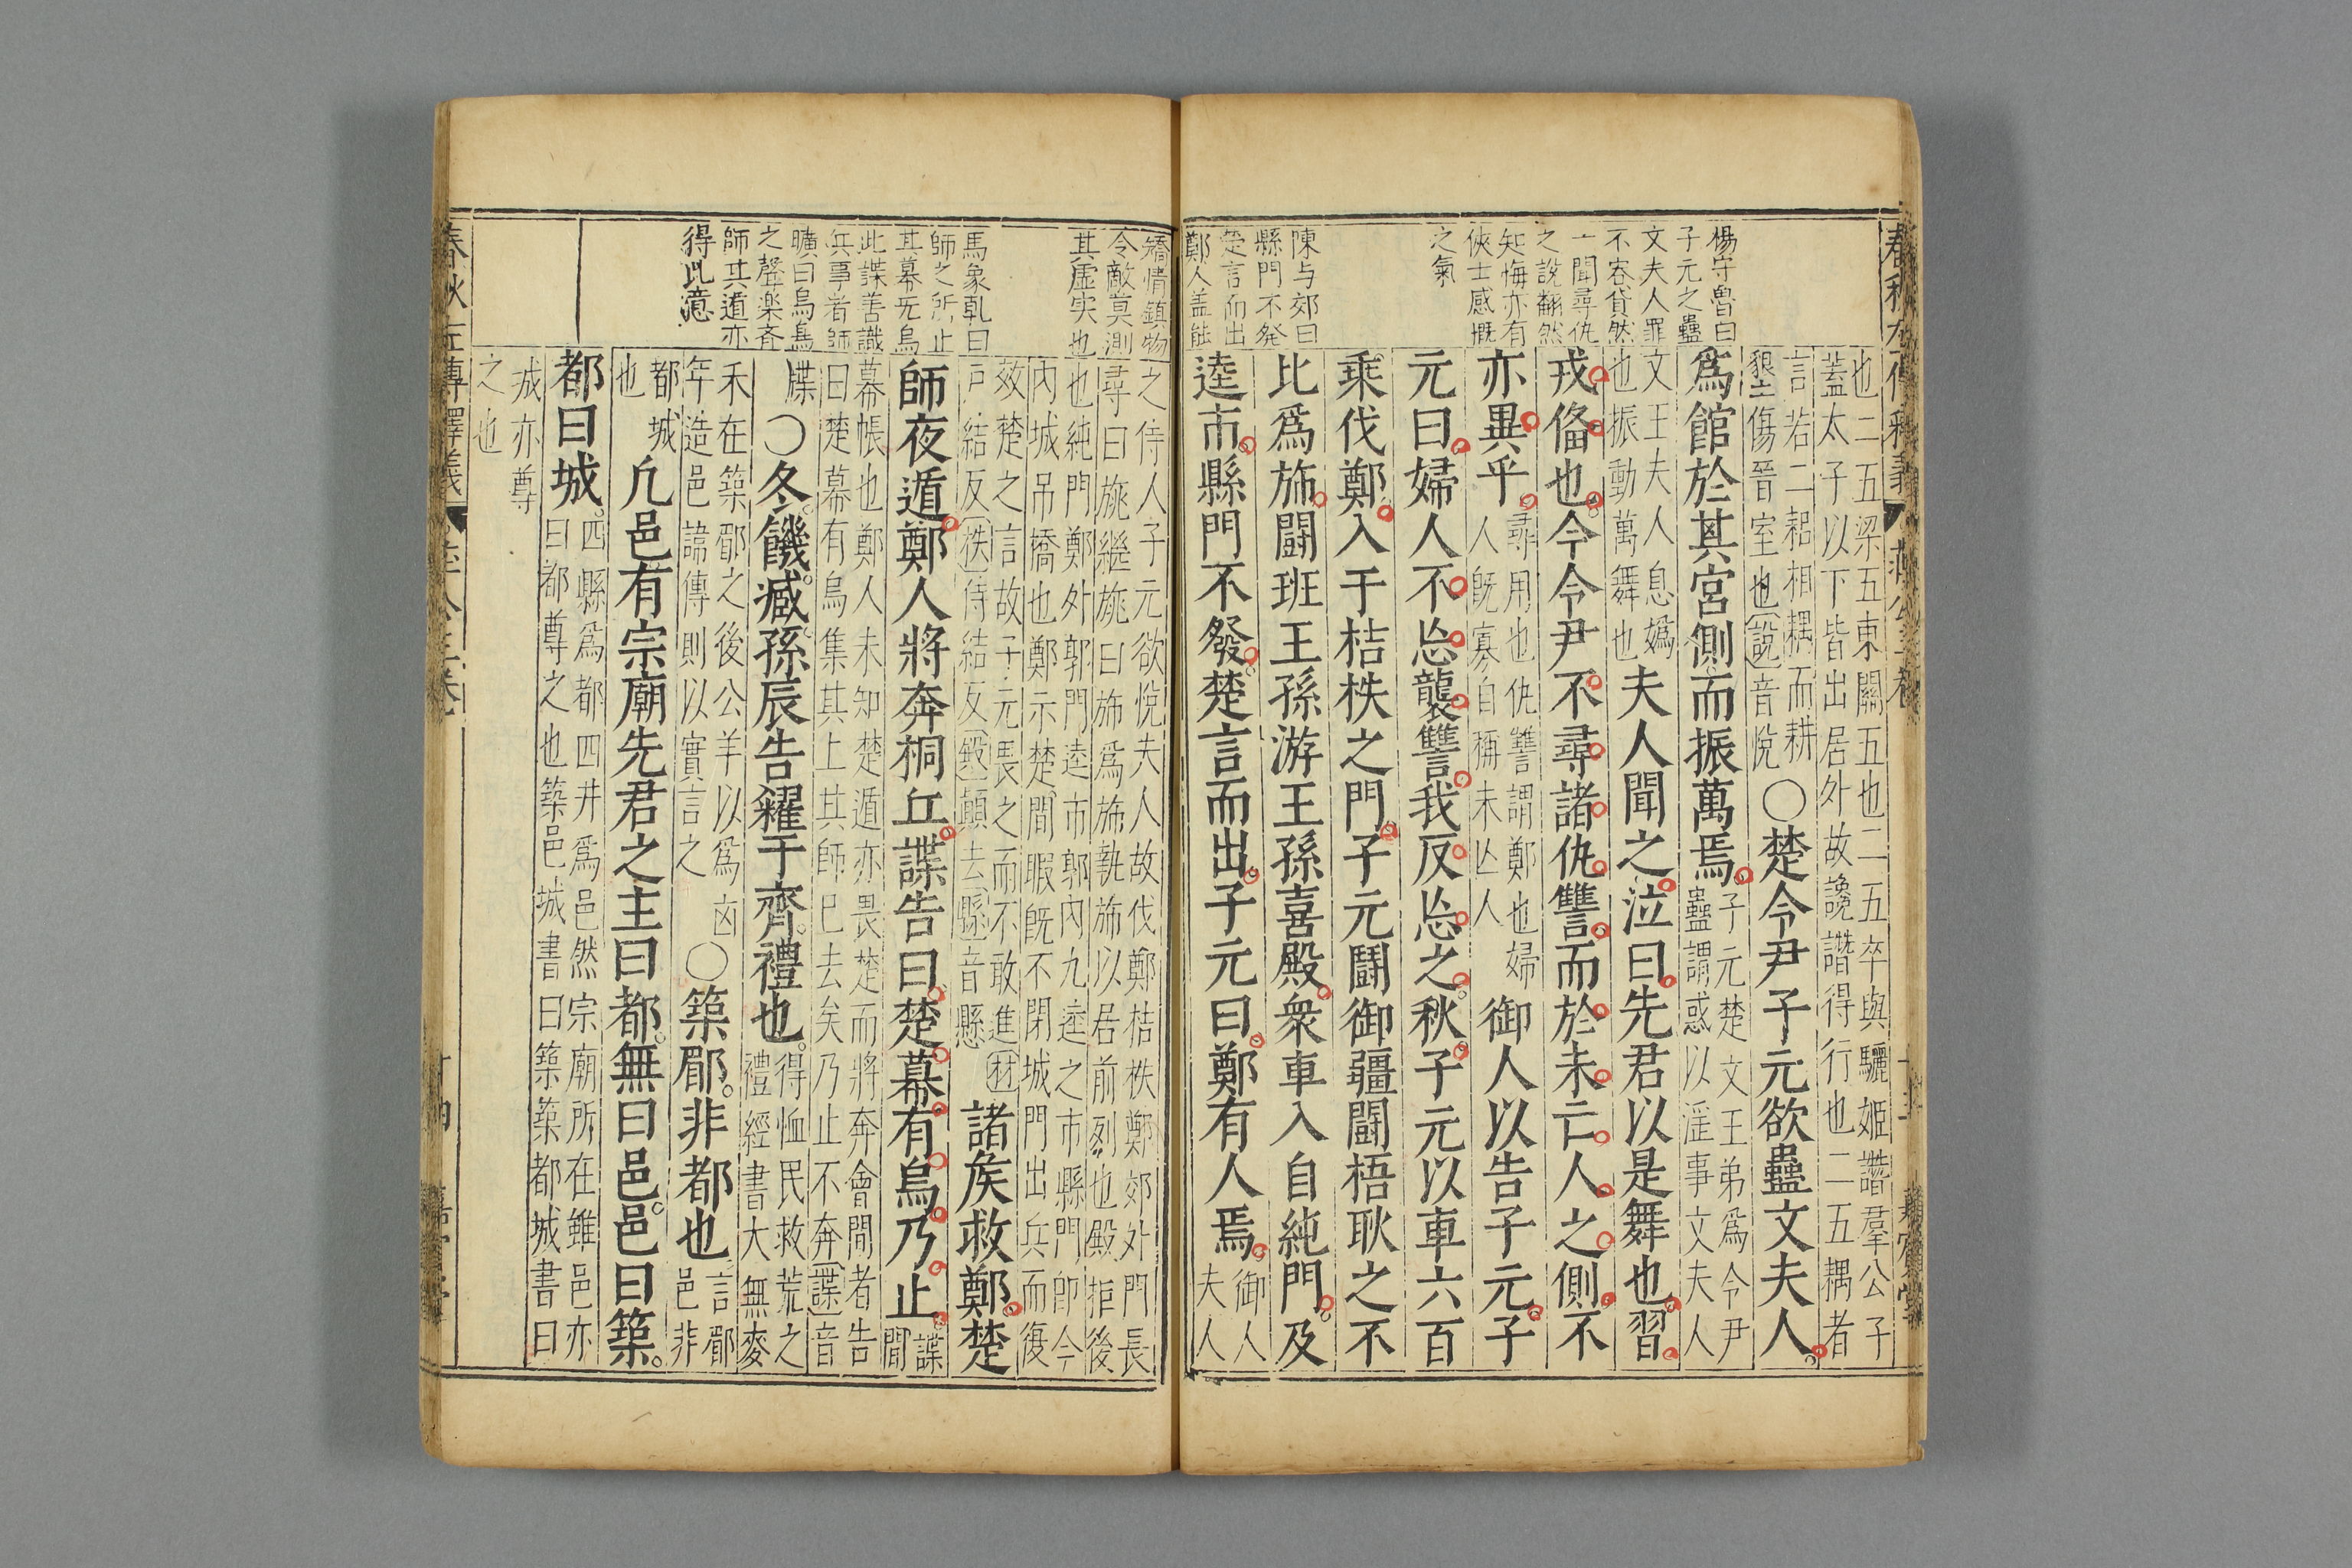 楊守魯曰
子元之蠱
文夫人罪
不容貸然
一聞尋仇
之說翻然
知悔亦有
俠士感慨
之氣
陳与郊曰
縣門不発
楚言而出
鄭人盖能
也二五梁五東關五也二五卒與驪姬譖羣公子
蓋太子以下皆出居外故讒譖得行也二五耦者
言若二耜相耦而耕
墾土傷晉室也說音悅
○楚令尹子元欲蠱文夫人
爲館於其宮側而振萬焉
子元楚文王弟爲令尹
蠱謂惑以淫事文夫人
文王夫人息嬀
也振動萬舞也
夫人聞之泣曰先君以是舞也習
戎俻也今令尹不尋諸仇讐而於未亡人之側不
亦異乎
尋用也仇讐謂鄭也婦
人既寡自稱未亾人
御人以告子元子
元曰婦人不忘襲讐我反忘之秋子元以車六百
乘伐鄭入于桔柣之門子元鬪御疆鬪梧耿之不
比爲斾鬪班王孫游王孫喜殿衆車入自純門及
逵市縣門不發楚言而出子元曰鄭有人焉
御人
夫人
矯情鎮物
令敵莫測
其虛実也
馬象乹曰
師之所止
其幕无烏
此諜善識
兵事者師
曠曰烏烏
之聲楽斉
師其遁亦
得此意
之侍人子元欲悅夫人故伐鄭桔柣鄭郊外門長
尋曰旐繼旐曰斾爲斾執斾以居前列也殿拒後
也純門鄭外郭門逵市郭內九逵之市縣門卽今
內城吊橋也鄭示楚閒暇既不閉城門出兵而復
效楚之言故子元畏之而不敢進
戸結反柣侍結反殿顛去縣音懸
諸矦救鄭楚
師夜遁鄭人將奔桐丘諜告曰楚幕有烏乃止
諜
間
幕帳也鄭人未知楚遁亦畏楚而將奔會間者告
曰楚幕有烏集其上其師巳去矣乃止不奔諜音
牒
○冬饑臧孫辰告糴于齊禮也
得恤民救荒之
禮經書大無麥
禾在築郿之後公羊以爲凶
年造邑諱傳則以實言之
○築郿非都也
言郿
邑非
都城
也
凢邑有宗廟先君之主曰都無曰邑邑曰築
都曰城
四縣爲都四井爲邑然宗廟所在雖邑亦
曰都尊之也築邑城書曰築築都城書曰
城亦尊
之也